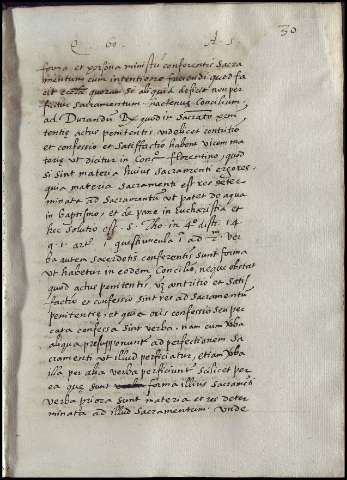 Q 60 A. 5 30
forma et persona ministri conferentis Sacra
mentum cum intentione faciendi quod fa
cit ecctia quorum se aliquid deficit non per
ficitur Sacramentum. hactenus Concilium,
ad Durandum Dx quod in Sacrato
tentię actus penitentis videlicet contritio
et confessio et satisfactio habent vicem ma
terię ut dicitur in Conc. florentino, quod
si sint materia huius sacramenti ergo res
quia materia Sacramenti est res deter
minata ad Sacramentum ut patet de aqua
in baptismo, et de pane in Eucharistia et
hec solutio est S. Tho. in 4º dist. 14
q. 1. art. 1 questiuncula 1 ad 2. Ver
ba autem sacerdotis conferentis sunt forma
ut habetur in eodem Concilio, neque obstat
quod actus penitentis vz contritio et satis
factio et confessio sint res ad sacramentum
penitentię, et quia oris confessio seu pec
cata confessa sint verba. nam cum verba
aliqua presupponunt ad perfectionem sa
cramenti ut illud perficiatur, etiam verba
illa per alia verba perficiunt scilicet per
ea que sunt forma illius sacramenti
verba priora sunt materia et res deter
minata ad illud Sacramentum. Unde